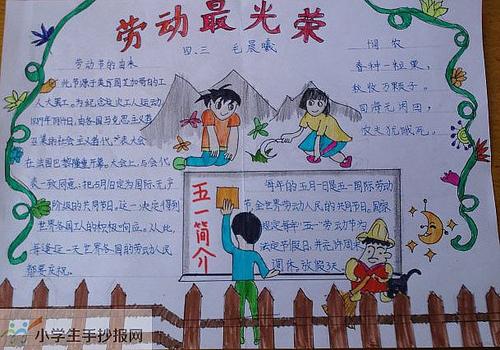 劳动最光荣
四、三 毛晨曦
劳动节的由来
此节源于美国芝加哥的工
人大罢工。为纪念这次工人运动
1889年7月14日，由各国马克思主义
者集的社会主义者代表大会
在法国巴黎隆重开幕。大会上，与会代
表一致同意：把5月1日定为国际无产
阶级的共同节日。这一决定得到
世界各国工人的积极响应。从此，
每逢这一天世界各国的劳动人民
都要庆祝。
悯农
春种一粒粟，
秋收万颗子。
四海无闲田，
农夫犹饿死。
五一简介
每年的五月一日是五一国际劳动
节，是全世界劳动人民的共同节日。国家
规定每年"五一"劳动节为
法定节假日，并允许周末
调休，放假3天。
小学生手抄报网